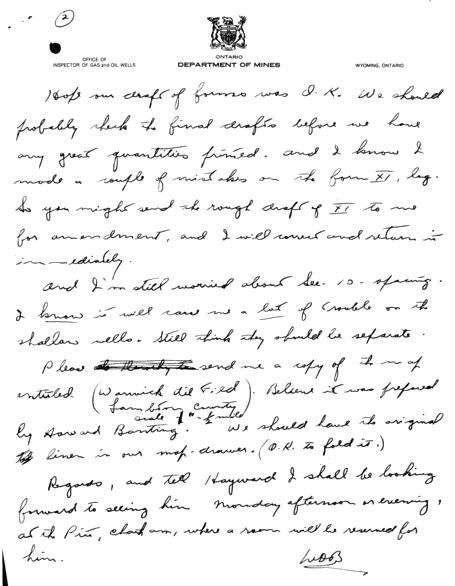 2
OFFICE OF
INSPECTOR OF GAS and OIL WELLS
ONTARIO
DEPARTMENT OF MINES
WYOMING, ONTARIO
Hope our draft of forms was O.K. We should
probably check the final drafts before we have
any great quantities printed. and I know I
made a couple of mistakes on the form XI, log.
So you might send the rough draft of XI to me
for amendment, and I will correct and return it
immediately.
and I'm still worried about Sec. 10 - spacing.
I know it will cause me a lot of trouble on the
shallow wells. Still think they should be separate.
Please send me a copy of the map
entitled (Warwick Oil Field). Believe it was prepared
Lambton County
scale
by Howard Banting. We should have the original
linen in our map-drawer. (O.K. to fold it.)
Regards, and tell Hayward I shall be looking
forward to seeing him Monday afternoon or evening,
at the Pit, Chatham, where a room will be reserved for
him.